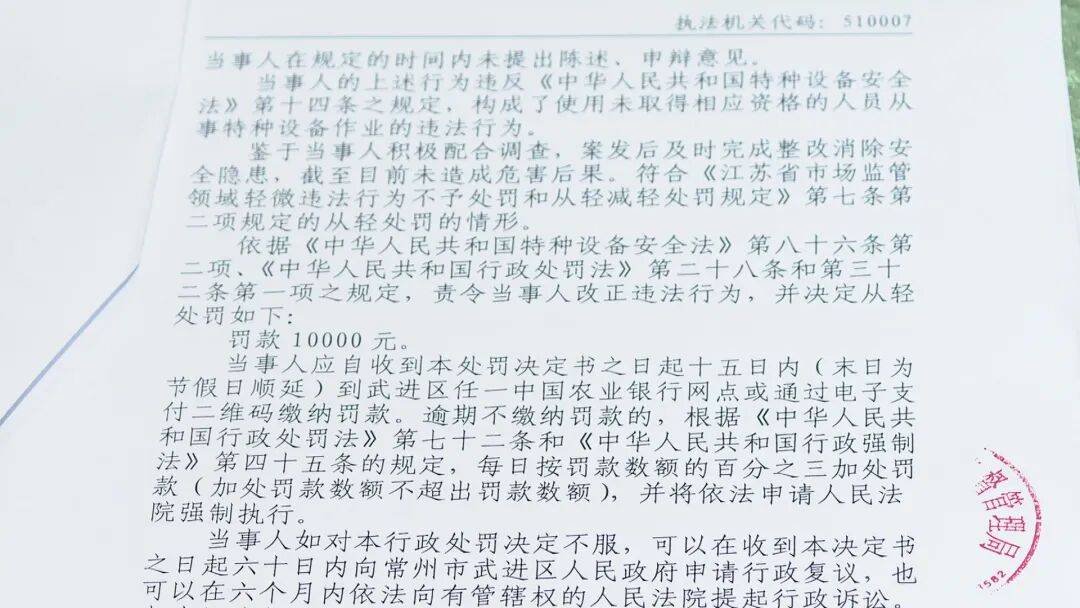 执法机关代码：510007
当事人在规定的时间内未提出陈述、申辩意见。
当事人的上述行为违反《中华人民共和国特种设备安全
法》第十四条之规定，构成了使用未取得相应资格的人员从
事特种设备作业的违法行为。
鉴于当事人积极配合调查，案发后及时完成整改消除安
全隐患，截至目前未造成危害后果。符合《江苏省市场监管
领域轻微违法行为不予处罚和从轻减轻处罚规定》第七条第
二项规定的从轻处罚的情形。
依据《中华人民共和国特种设备安全法》第八十六条第
二项、《中华人民共和国行政处罚法》第二十八条和第三十
二条第一项之规定，责令当事人改正违法行为，并决定从轻
处罚如下：
罚款 10000 元。
当事人应自收到本处罚决定书之日起十五日内（末日为
节假日顺延）到武进区任一中国农业银行网点或通过电子支
付二维码缴纳罚款。逾期不缴纳罚款的，根据《中华人民共
和国行政处罚法》第七十二条和《中华人民共和国行政强制
法》第四十五条的规定，每日按罚款数额的百分之三加处罚
款（加处罚款数额不超出罚款数额），并将依法申请人民法
院强制执行。
当事人如对本行政处罚决定不服，可以在收到本决定书
之日起六十日内向常州市武进区人民政府申请行政复议，也
可以在六个月内依法向有管辖权的人民法院提起行政诉讼。
督管理局
1582